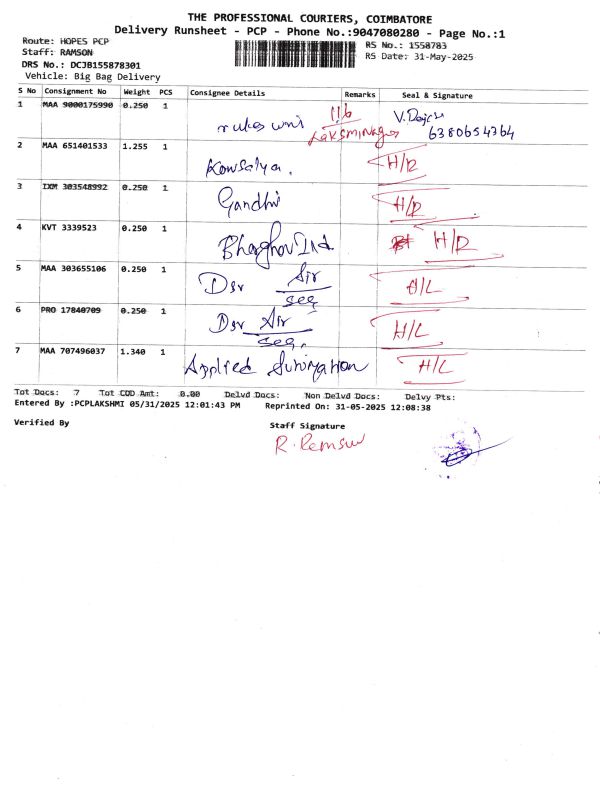 THE PROFESSIONAL COURIERS, COIMBATORE
Delivery Runsheet - PCP - Phone No.:9047080280 - Page No.:1
Route: HOPES PCP RS No.: 1558783
Staff: RAMSON RS Date: 31-May-2025
DRS No.: DCJB155878301
Vehicle: Big Bag Delivery
S No Consignment No Weight PCS Consignee Details Remarks Seal & Signature
1 MAA 9000175990 0.250 1 11b
6380654764
2 MAA 651401533 1.255 1 Kowsalya. H/R
3 IXM 303548992 0.250 1 Gandhi H/R
4 KVT 3339523 0.250 1 H/R
5 MAA 303655106 0.250 1 Dsr Air H/L
seq
6 PRO 17840709 0.250 1 Dsr Air H/L
seq.
7 MAA 707496037 1.340 1 Applied H/L
Tot Docs: 7 Tot COD Amt: 0.00 Delvd Docs: Non Delvd Docs: Delvy Pts:
Entered By :PCPLAKSHMI 05/31/2025 12:01:43 PM Reprinted On: 31-05-2025 12:08:38
Verified By Staff Signature